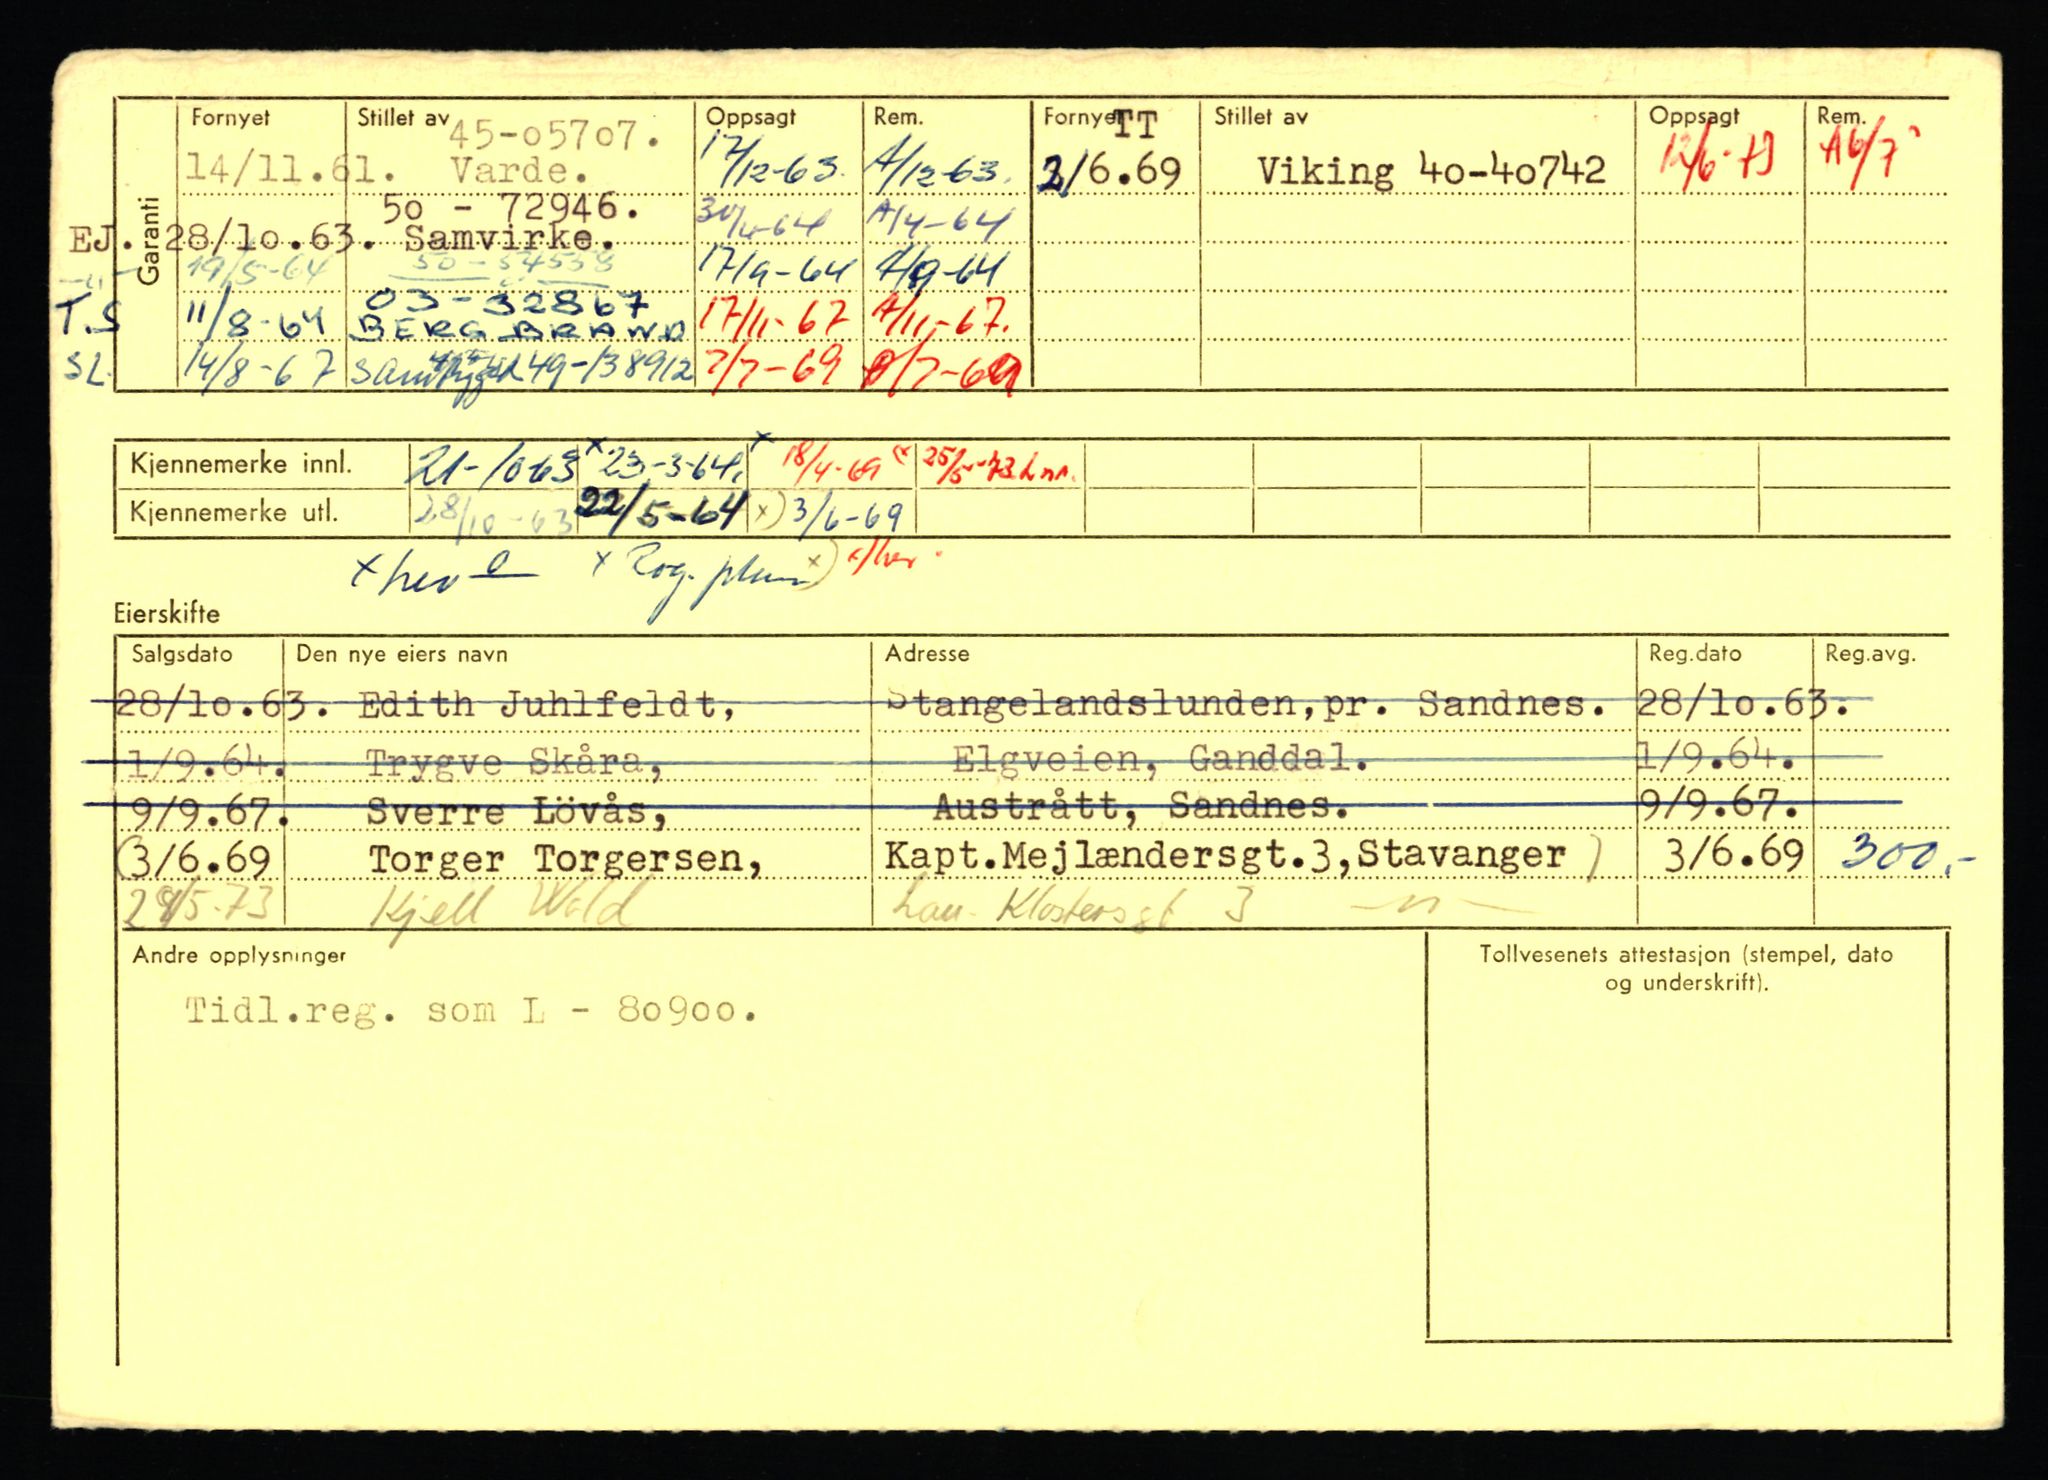 Garanti
Fornyet Stillet av Oppsagt Rem. Fornyet TT Stillet av Oppsagt Rem.
45-05707.
14/11.61. Varde. 17/12-63. A/12-63. 2/6.69 Viking 40-40742 12/6-73 A6/7
50 - 72946.
EJ. 28/10.63. Samvirke. 30/4-64 A/4-64
-"- 19/5-64 50-54558 17/9-64 A/9-64
03-32867
T.S 11/8-64 BERG BRAND 17/11-67 A/11-67.
SL. 14/8-67 49-138912 7/7-69 A/7-69
Kjennemerke innl. 21-10-63 x 23-3-64, x 18/4-69 (x 25/5-73
Kjennemerke utl. 28/10-63 22/5-64 x) 3/6-69
x x Rog. x)
Eierskifte
Salgsdato Den nye eiers navn Adresse Reg.dato Reg.avg.
28/10.63. Edith Juhlfeldt, Stangelandslunden,pr. Sandnes. 28/10.63.
1/9.64. Trygve Skåra, Elgveien, Ganddal. 1/9.64.
9/9.67. Sverre Lövås, Austrått, Sandnes. 9/9.67.
(3/6.69 Torger Torgersen, Kapt.Mejlændersgt.3,Stavanger ) 3/6.69 300,-
Kjell Wold Lau. Klostersgt 3 -"-
Andre opplysninger Tollvesenets attestasjon (stempel, dato
og underskrift).
Tidl.reg. som L - 80900.